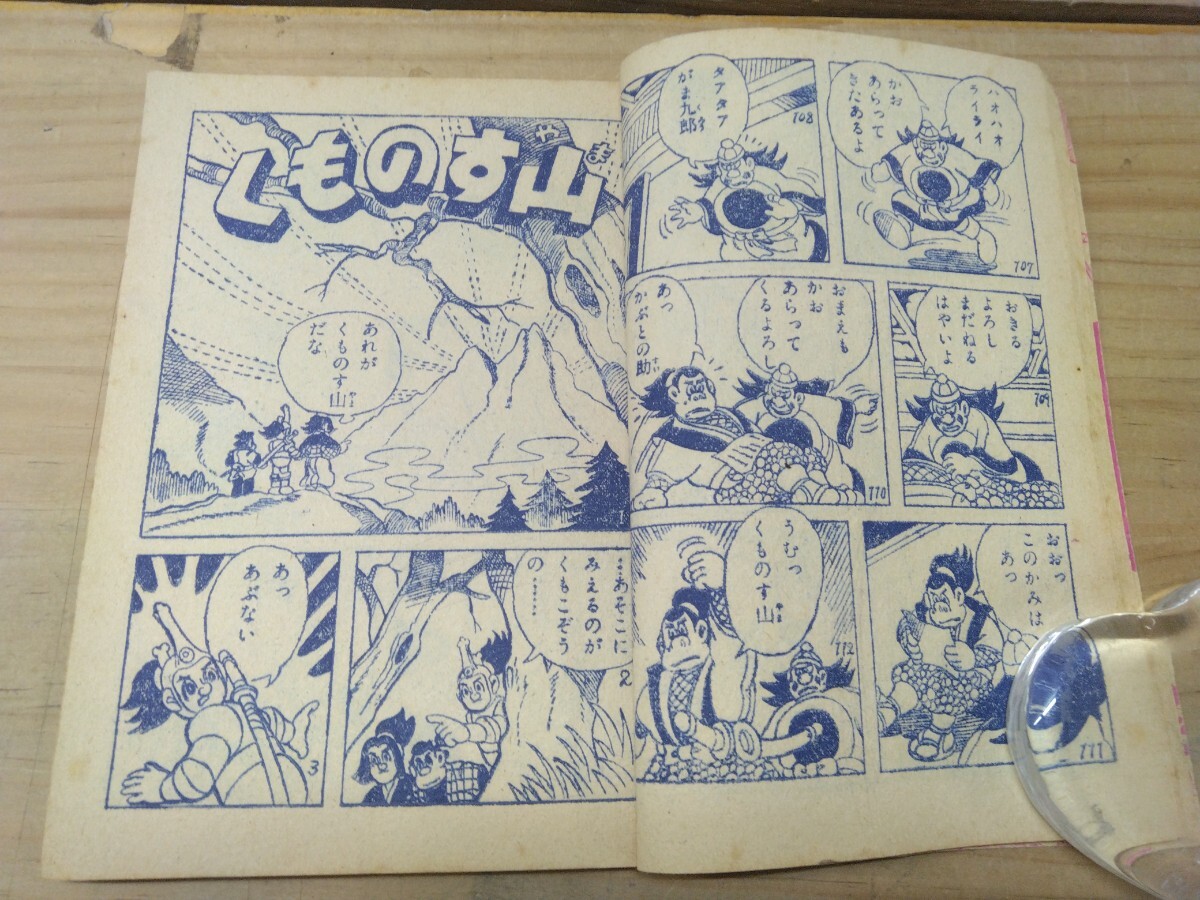 ハオハオ
ライライ
かお
あらって
きたあるよ
107
タアタア
がま九郎
108
おきる
よろし
まだねる
はやいよ
109
おまえも
かお
あらって
くるよろし
あっ
かぶとの助
110
おおっ
このかみは
あっ
111
うむっ
くものす山
112
くものす山
あれが
くものす山
だな
1
…あそこに
みえるのが
くもこぞう
の……
2
あっ
あぶない
3